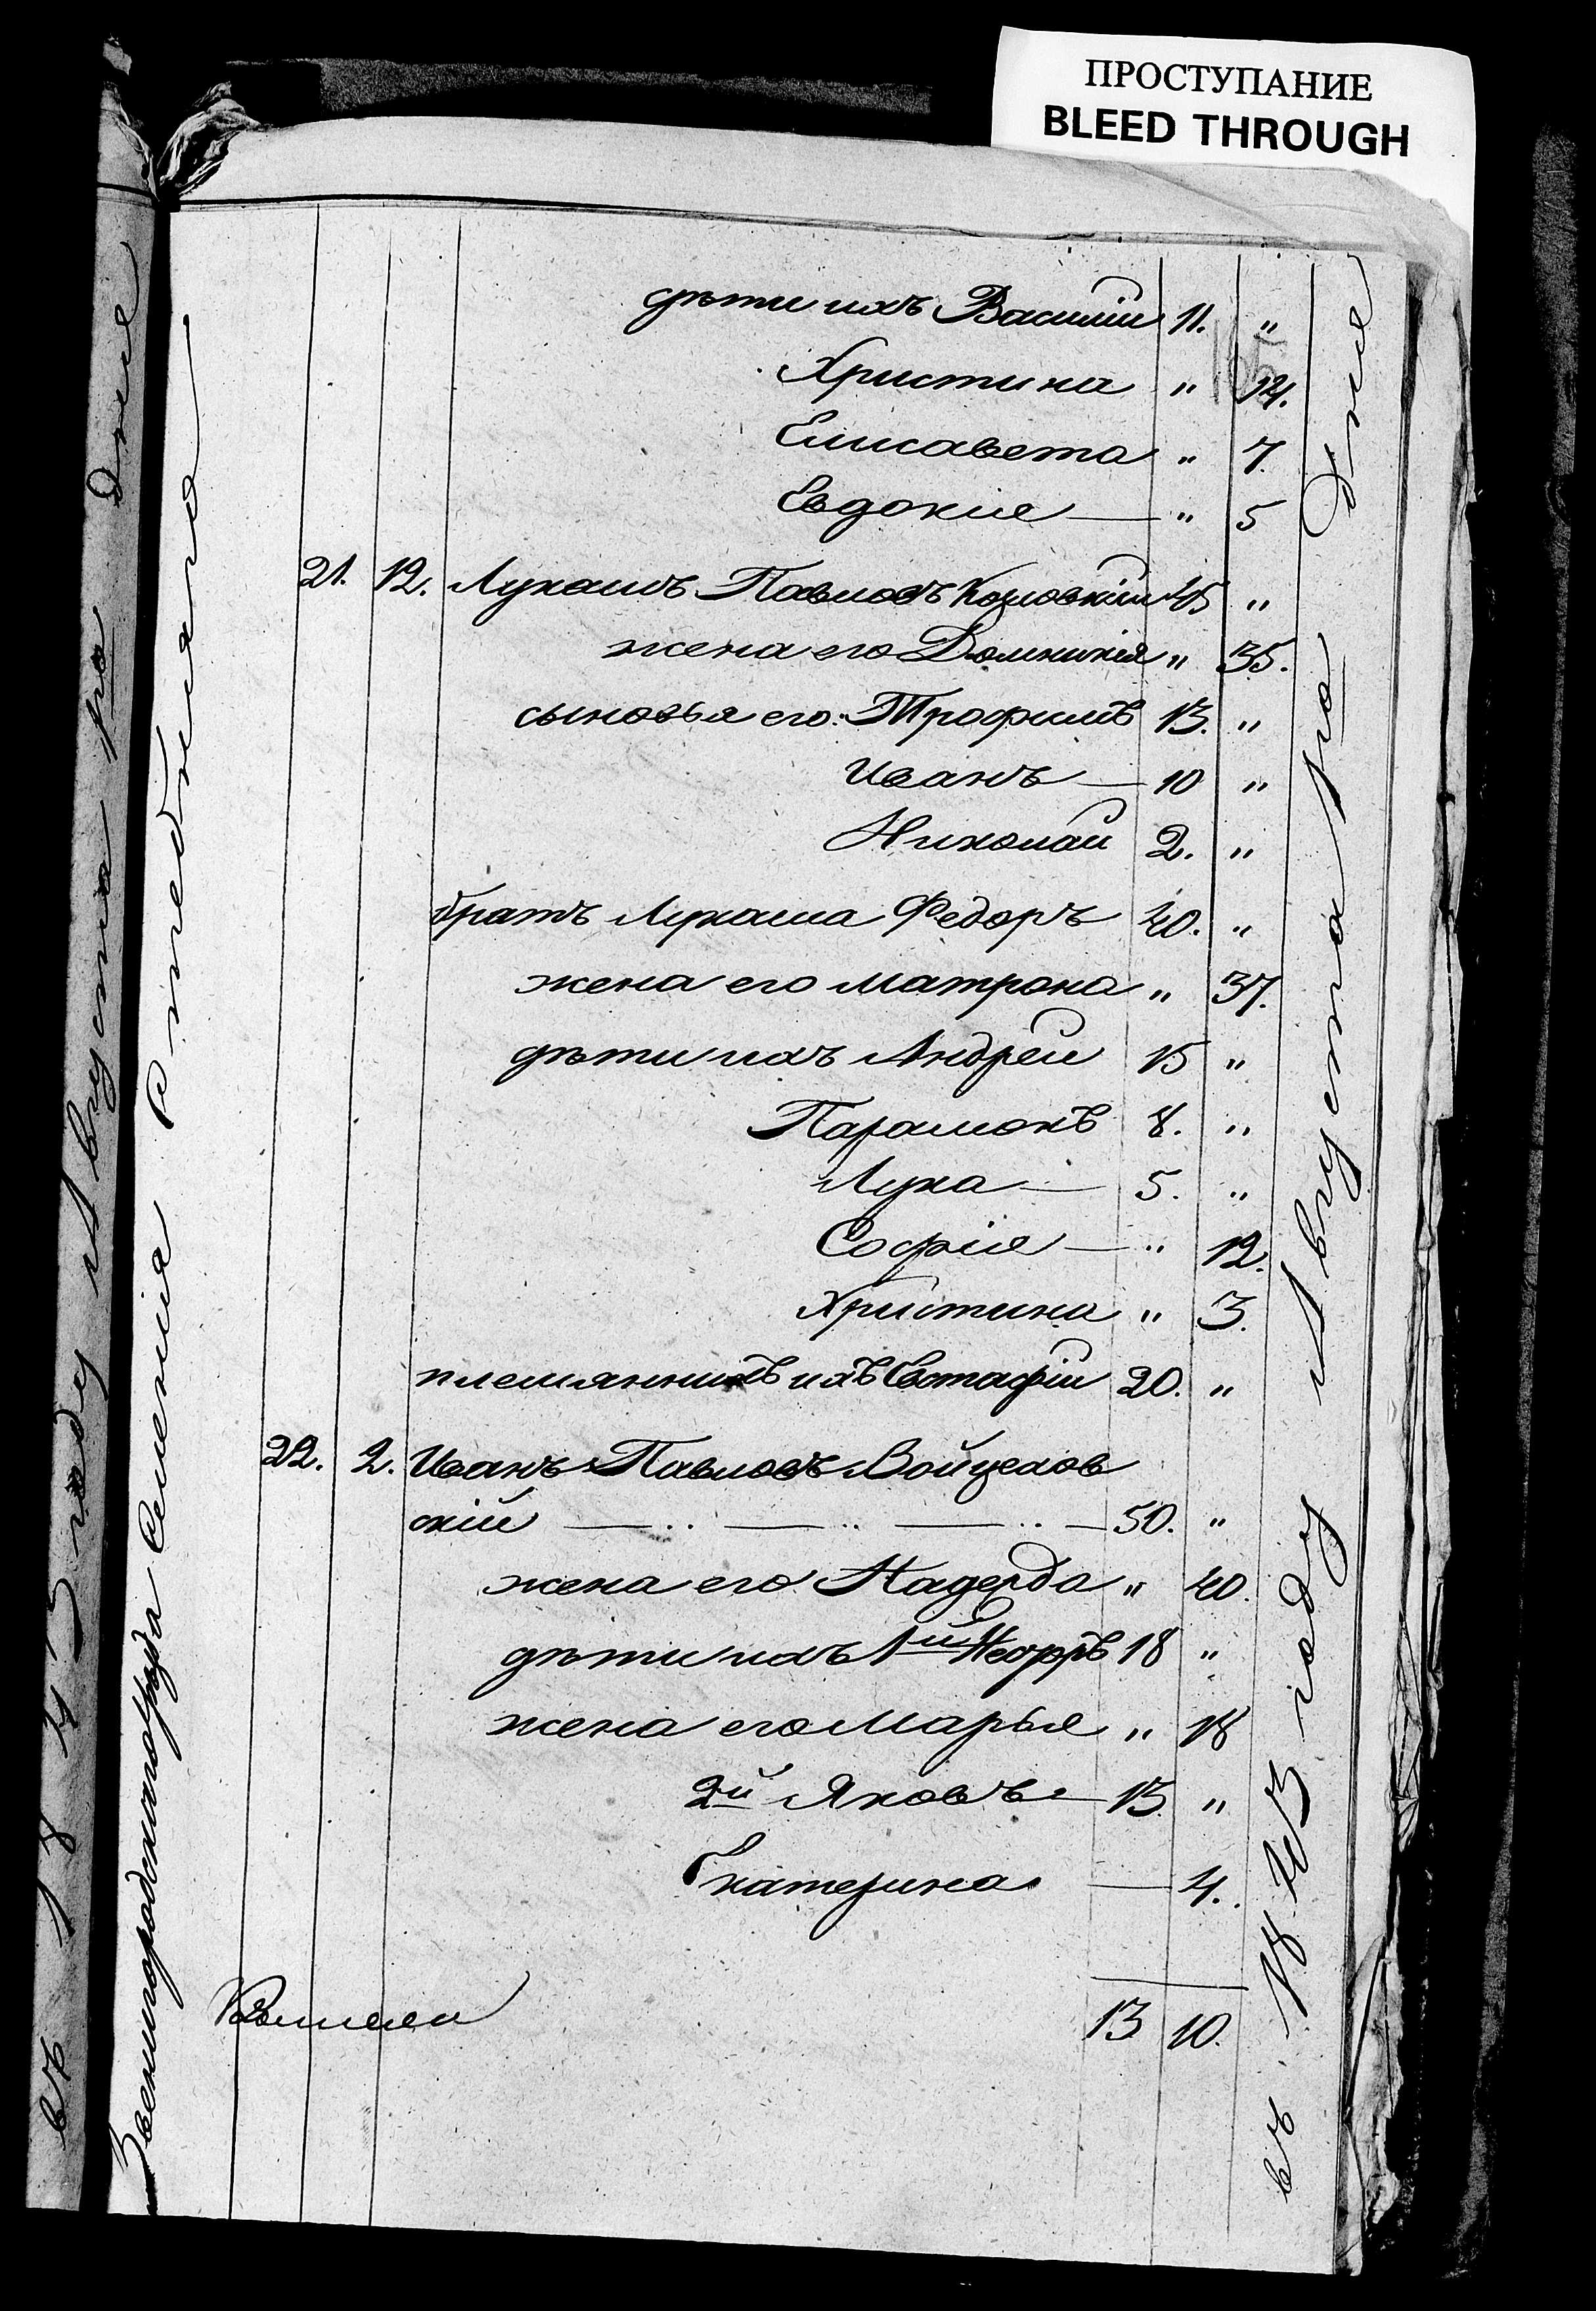 ПРОСТУПАНИЕ
BLEED THROUGH
дѣти ихъ Василій 11. "
Христина " 14.
Елисавета " 7.
Евдокія — " 5
21. 12. Лукашъ Павловъ Козловскій 45 "
жена его Домникія " 35.
сыновья его: Трофимъ 13. "
Иванъ — 10 "
Николай 2. "
братъ Лукаша Федоръ 40. "
жена его Матрона " 37.
дѣти ихъ Андрей 15 "
Парамонъ 8. "
Лука — 5. "
Софія — " 12.
Христина " 3.
племянникъ ихъ Евстафій 20. "
22. 2. Иванъ Павловъ Войцехов
скій — .. — .. — .. — 50. "
жена его " 40.
дѣти ихъ 1й 18 "
жена его Марья " 18
2й Яковъ — 13 "
Екатерина — 4.
13 10.
Звенигородского уѣзда Селенія
въ 1843 году Августа 1го дня
въ 1843 году Августа 1го дня